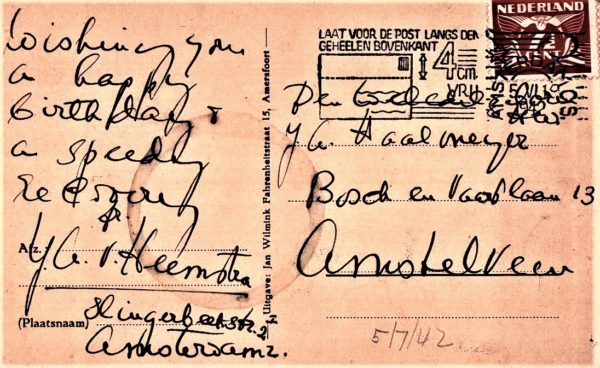 Wishing you
a happy
birthday &
a speedy
recovery
Afz.
J.A. v. Heemstra
(Plaatsnaam)
Amsterdam Z.
Uitgave: Jan Wilmink Fahrenheitstraat 15, Amersfoort
LAAT VOOR DE POST LANGS DEN
GEHEELEN BOVENKANT
4
cm
VRIJ
NEDERLAND
7½
CENT
Den
Bosch en Vaartlaan 13
Amstelveen
5/7/42